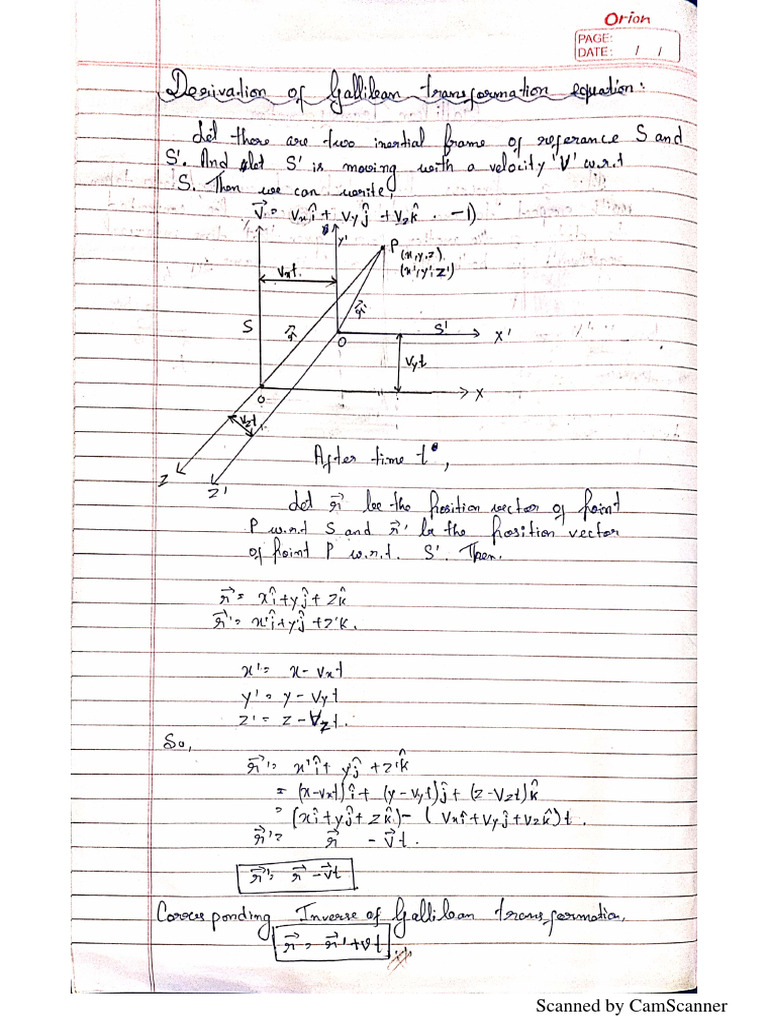 Orion
PAGE:
DATE: / /
Derivation of Gallilean transformation equation:
Let there are two inertial frame of referance S and
S'. And let S' is moving with a velocity 'V' w.r.t
S. Then we can write,
V⃗ = Vxî + Vyĵ + Vzk̂ . -1)
Y'
P
(x,y,z).
(x',y',z')
Vxt.
r⃗'
S
r⃗
S'
X'
O
Vyt
O
X
Vzt
After time t,
Z
Z'
Let r⃗ be the position vector of point
P w.r.t S and r⃗' be the position vector
of point P w.r.t. S'. Then.
r⃗ = xî+yĵ+zk̂
r⃗' = x'î+y'ĵ+z'k.
x' = x- Vxt
y' = y - Vyt
z' = z - Vzt.
So,
r⃗' = x'î+ y'ĵ +z'k̂
= (x-Vxt)î + (y-Vyt)ĵ + (z-Vzt)k̂
= (xî+yĵ+zk̂)- (Vxî+Vyĵ+Vzk̂)t.
r⃗' = r⃗ - V⃗t.
r⃗' = r⃗ - V⃗t
Corresponding Inverse of Gallilean transformation.
r⃗ = r⃗' + Vt.
Scanned by CamScanner